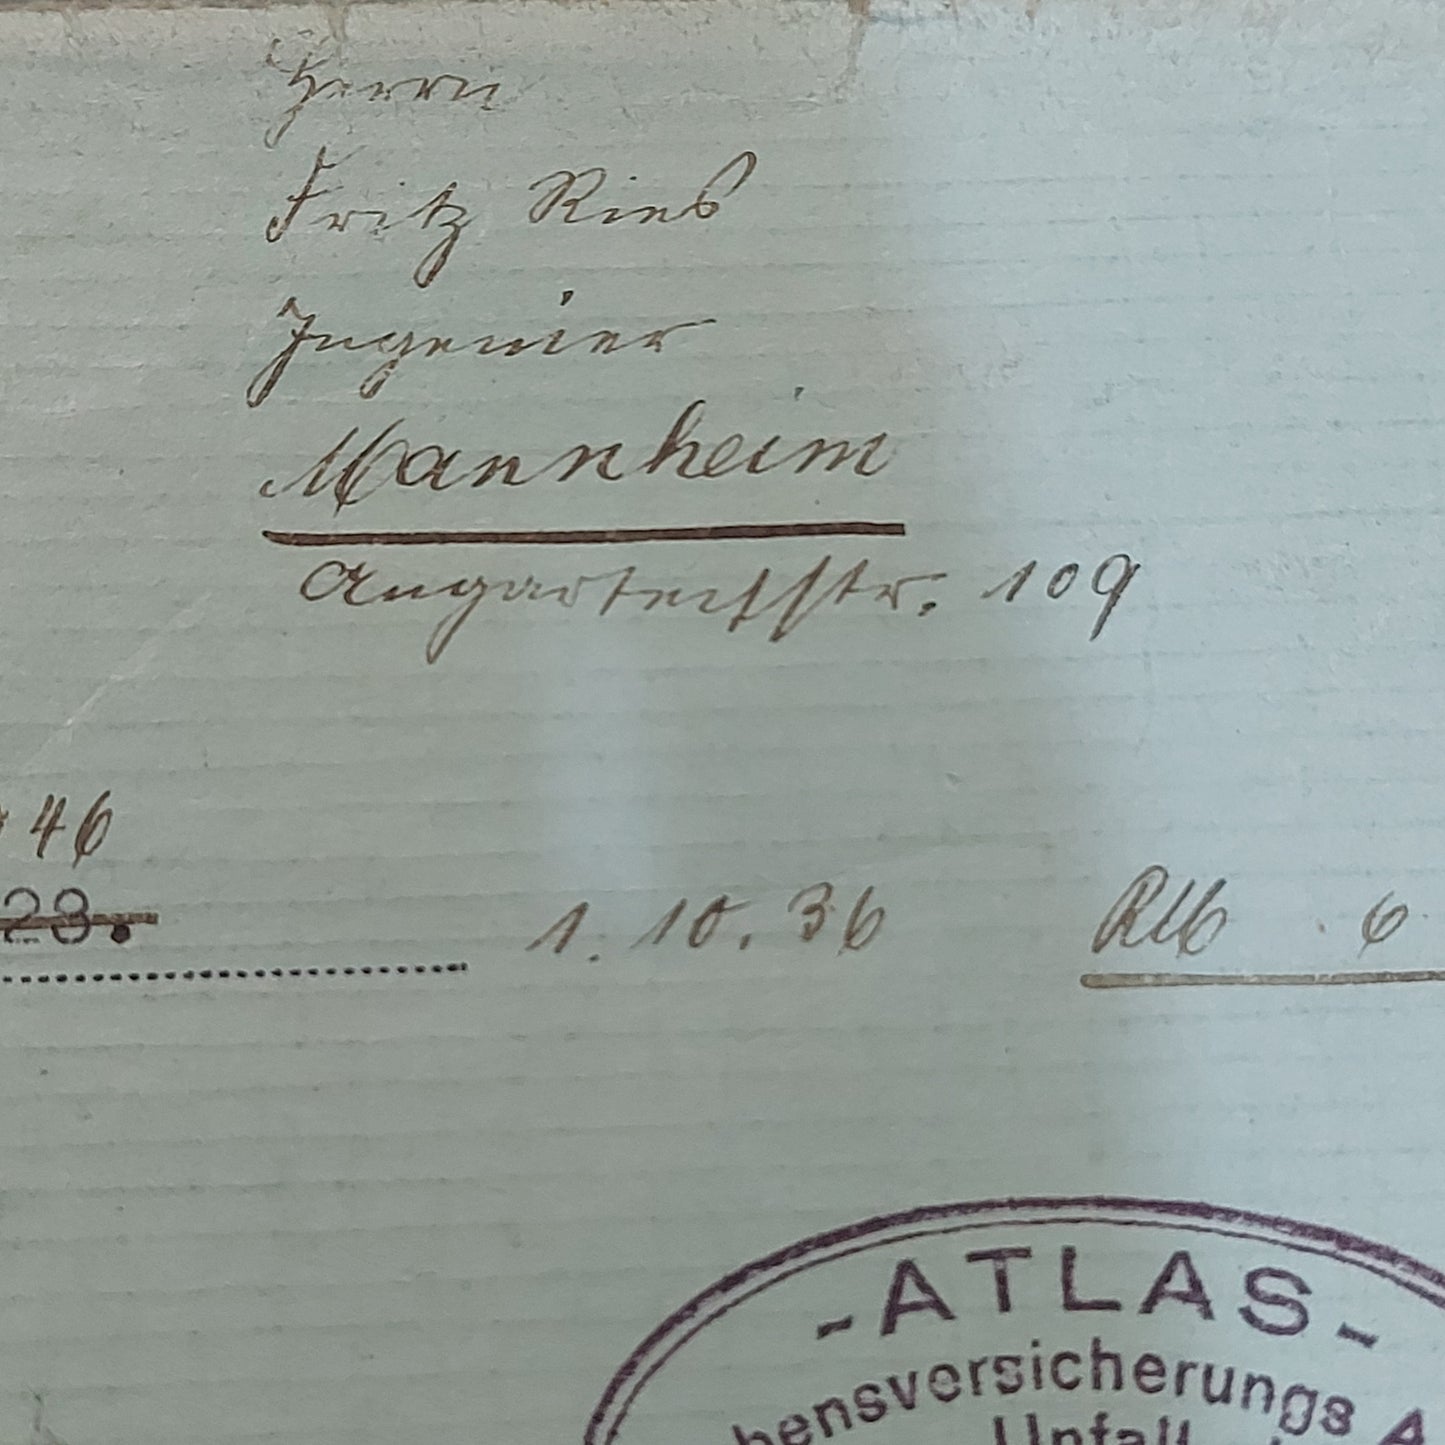 Herrn
Fritz Ries
Ingenier
Mannheim
Augartenstr. 109
46
28.
1. 10. 36 RM 6
-ATLAS-
bensversicherungs A
Unfall